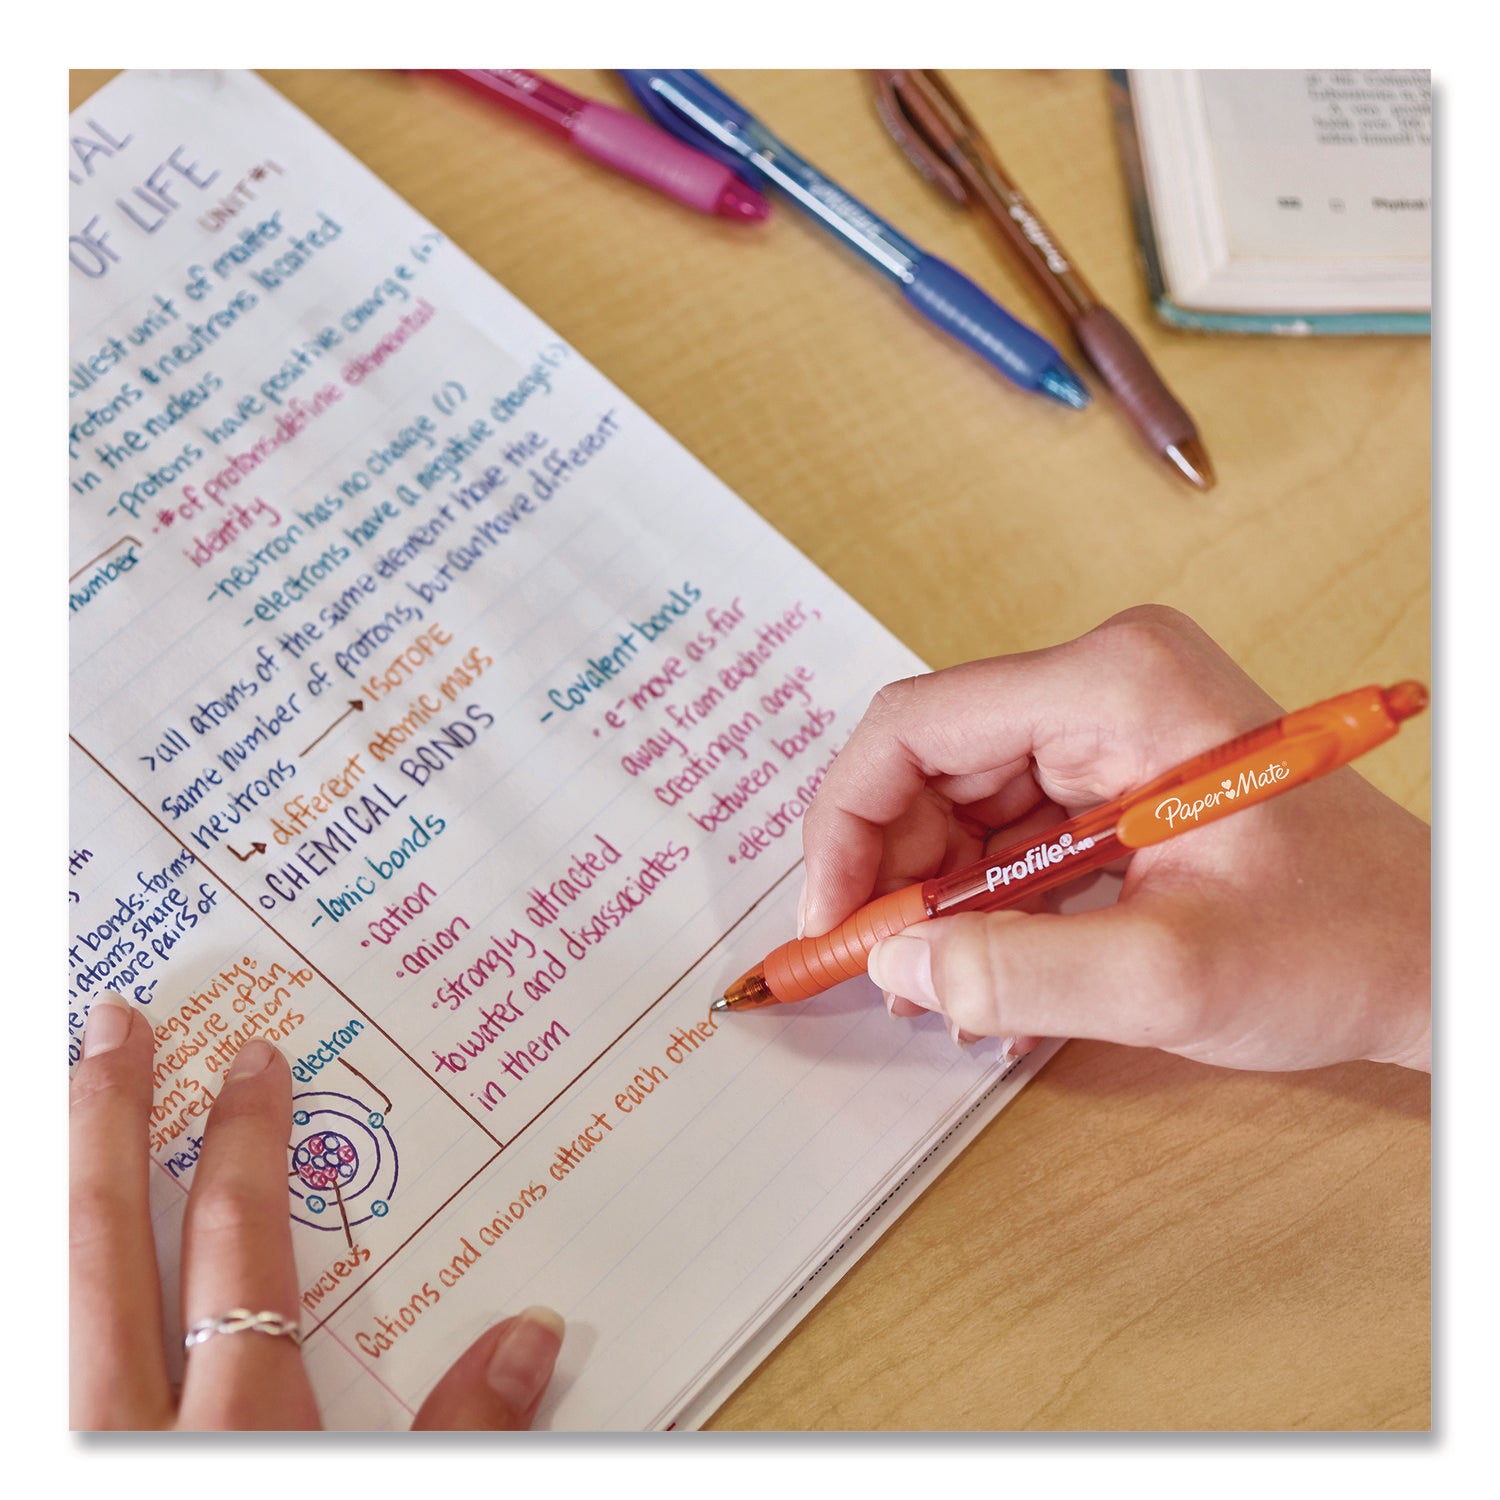 TAL
OF LIFE
UNIT #1
allest unit of matter
protons & neutrons located
in the nucleus
-protons have positive charge (+)
•# of protons define elemental
identity
number
-neutron has no charge (/)
-electrons have a negative charge (-)
>all atoms of the same element have the
same number of protons, but can have different
neutrons → ISOTOPE
↳ different atomic mass
○CHEMICAL BONDS
-Ionic bonds
•cation
•anion
•strongly attracted
to water and disassociates
in them
-Covalent bonds
•e⁻ move as far
away from each other,
creating an angle
between bonds
t bonds: forms
atoms share
more pairs of
e-
egativity:
measure of an
om's attraction to
shared
electron
nucleus
Cations and anions attract each other
Profile® 1.4B
Paper Mate®
Physical